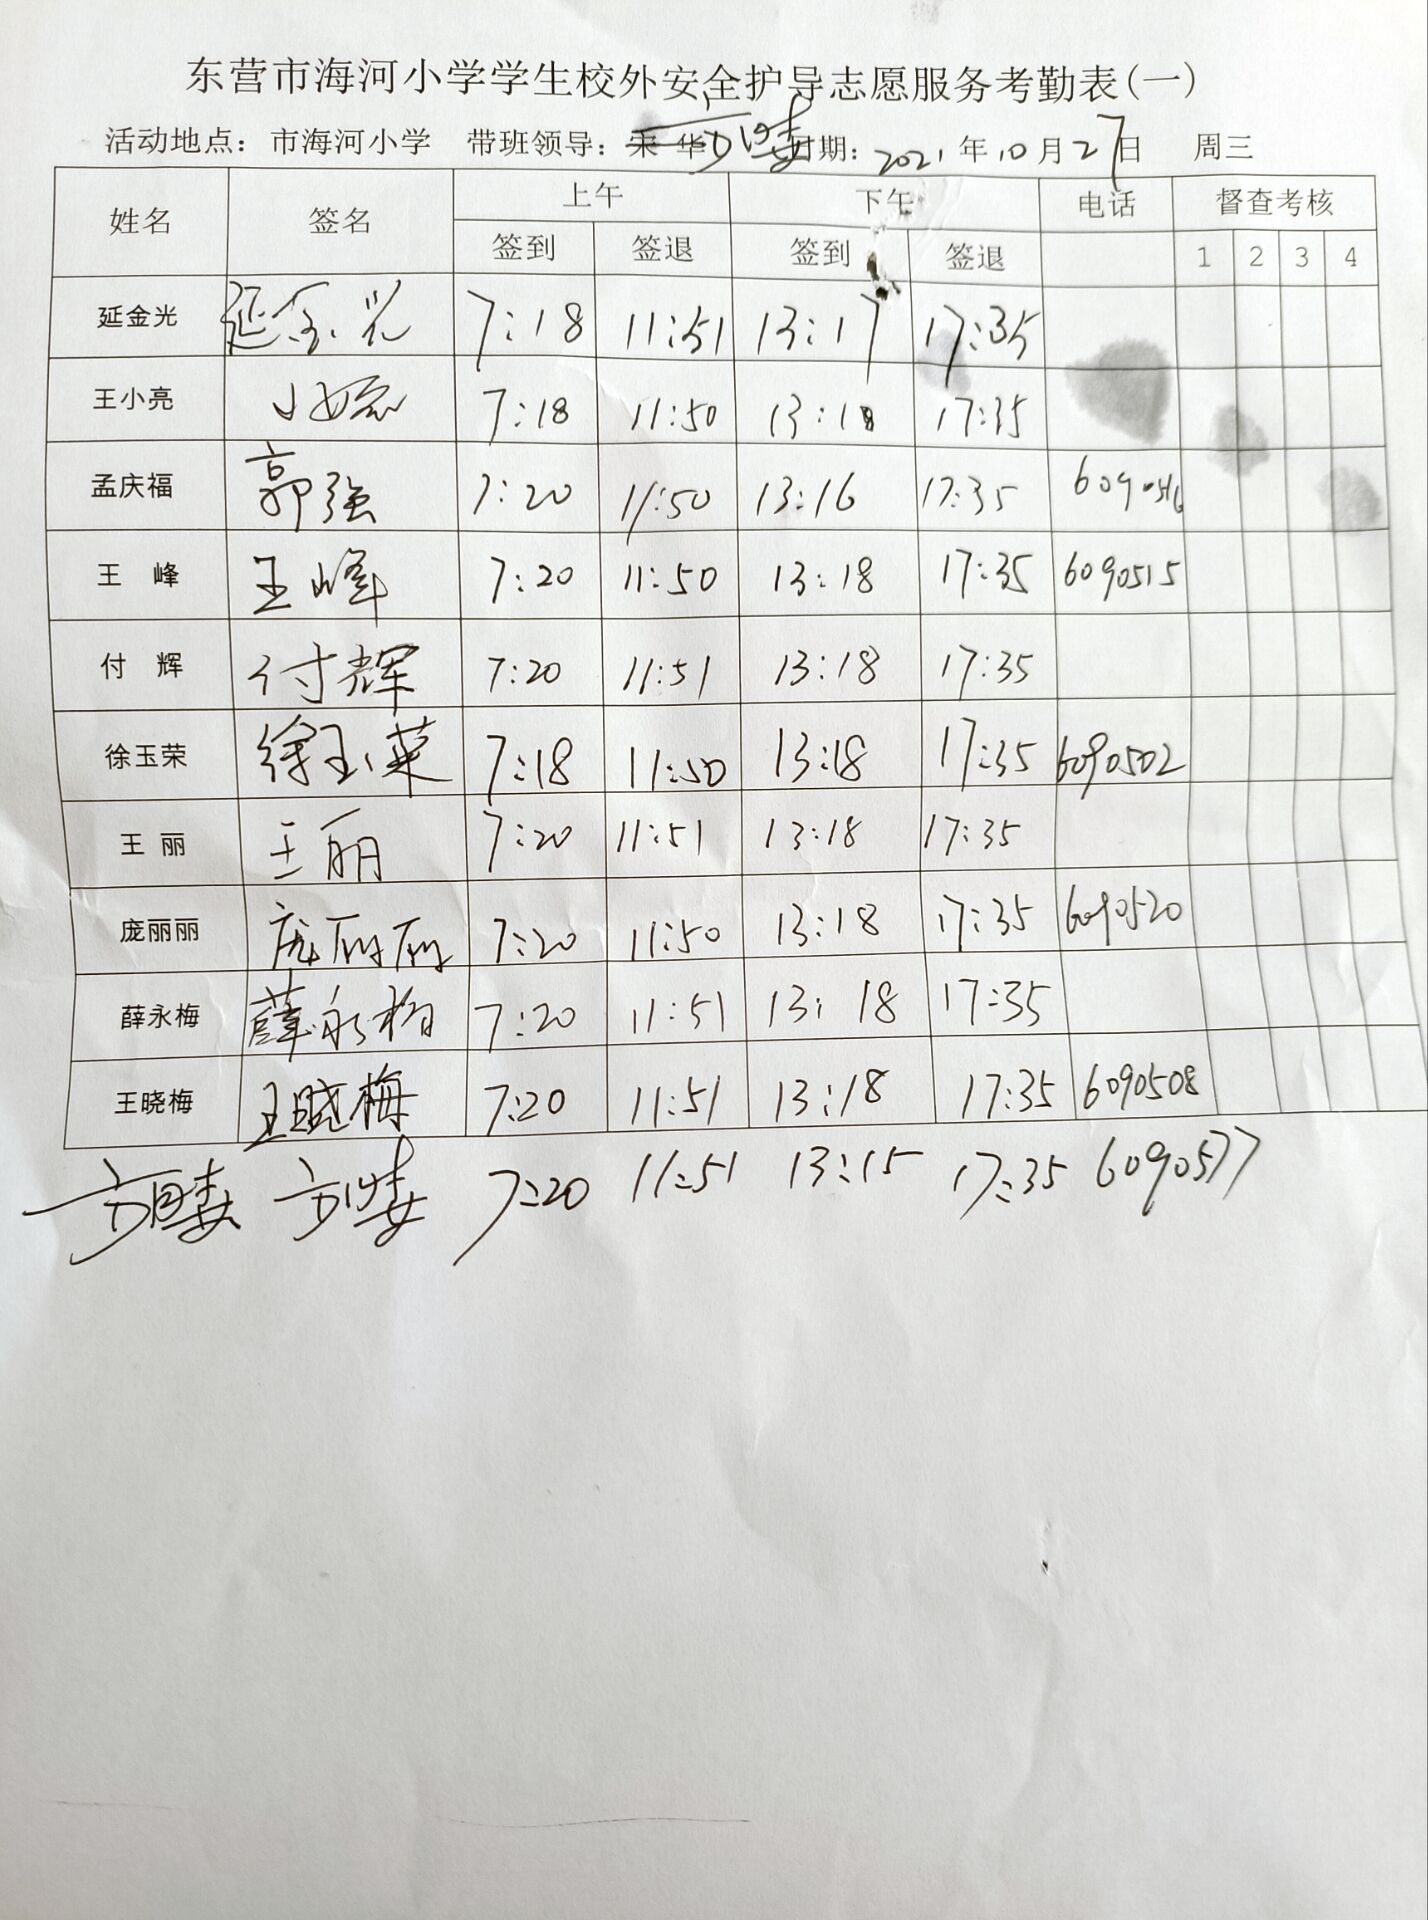 东营市海河小学学生校外安全护导志愿服务考勤表(一)
活动地点：市海河小学 带班领导： 日期：2021年10月27日 周三
姓名 签名 上午 下午 电话 督查考核
签到 签退 签到 签退 1 2 3 4
延金光 延金光 7:18 11:51 13:17 17:35
王小亮 7:18 11:50 13:18 17:35
孟庆福 郭强 7:20 11:50 13:16 17:35 6090516
王 峰 王峰 7:20 11:50 13:18 17:35 6090515
付 辉 付辉 7:20 11:51 13:18 17:35
徐玉荣 徐玉荣 7:18 11:50 13:18 17:35 6090502
王 丽 王丽 7:20 11:51 13:18 17:35
庞丽丽 庞丽丽 7:20 11:50 13:18 17:35 6090520
薛永梅 薛永梅 7:20 11:51 13:18 17:35
王晓梅 王晓梅 7:20 11:51 13:18 17:35 6090508
7:20 11:51 13:15 17:35 6090577